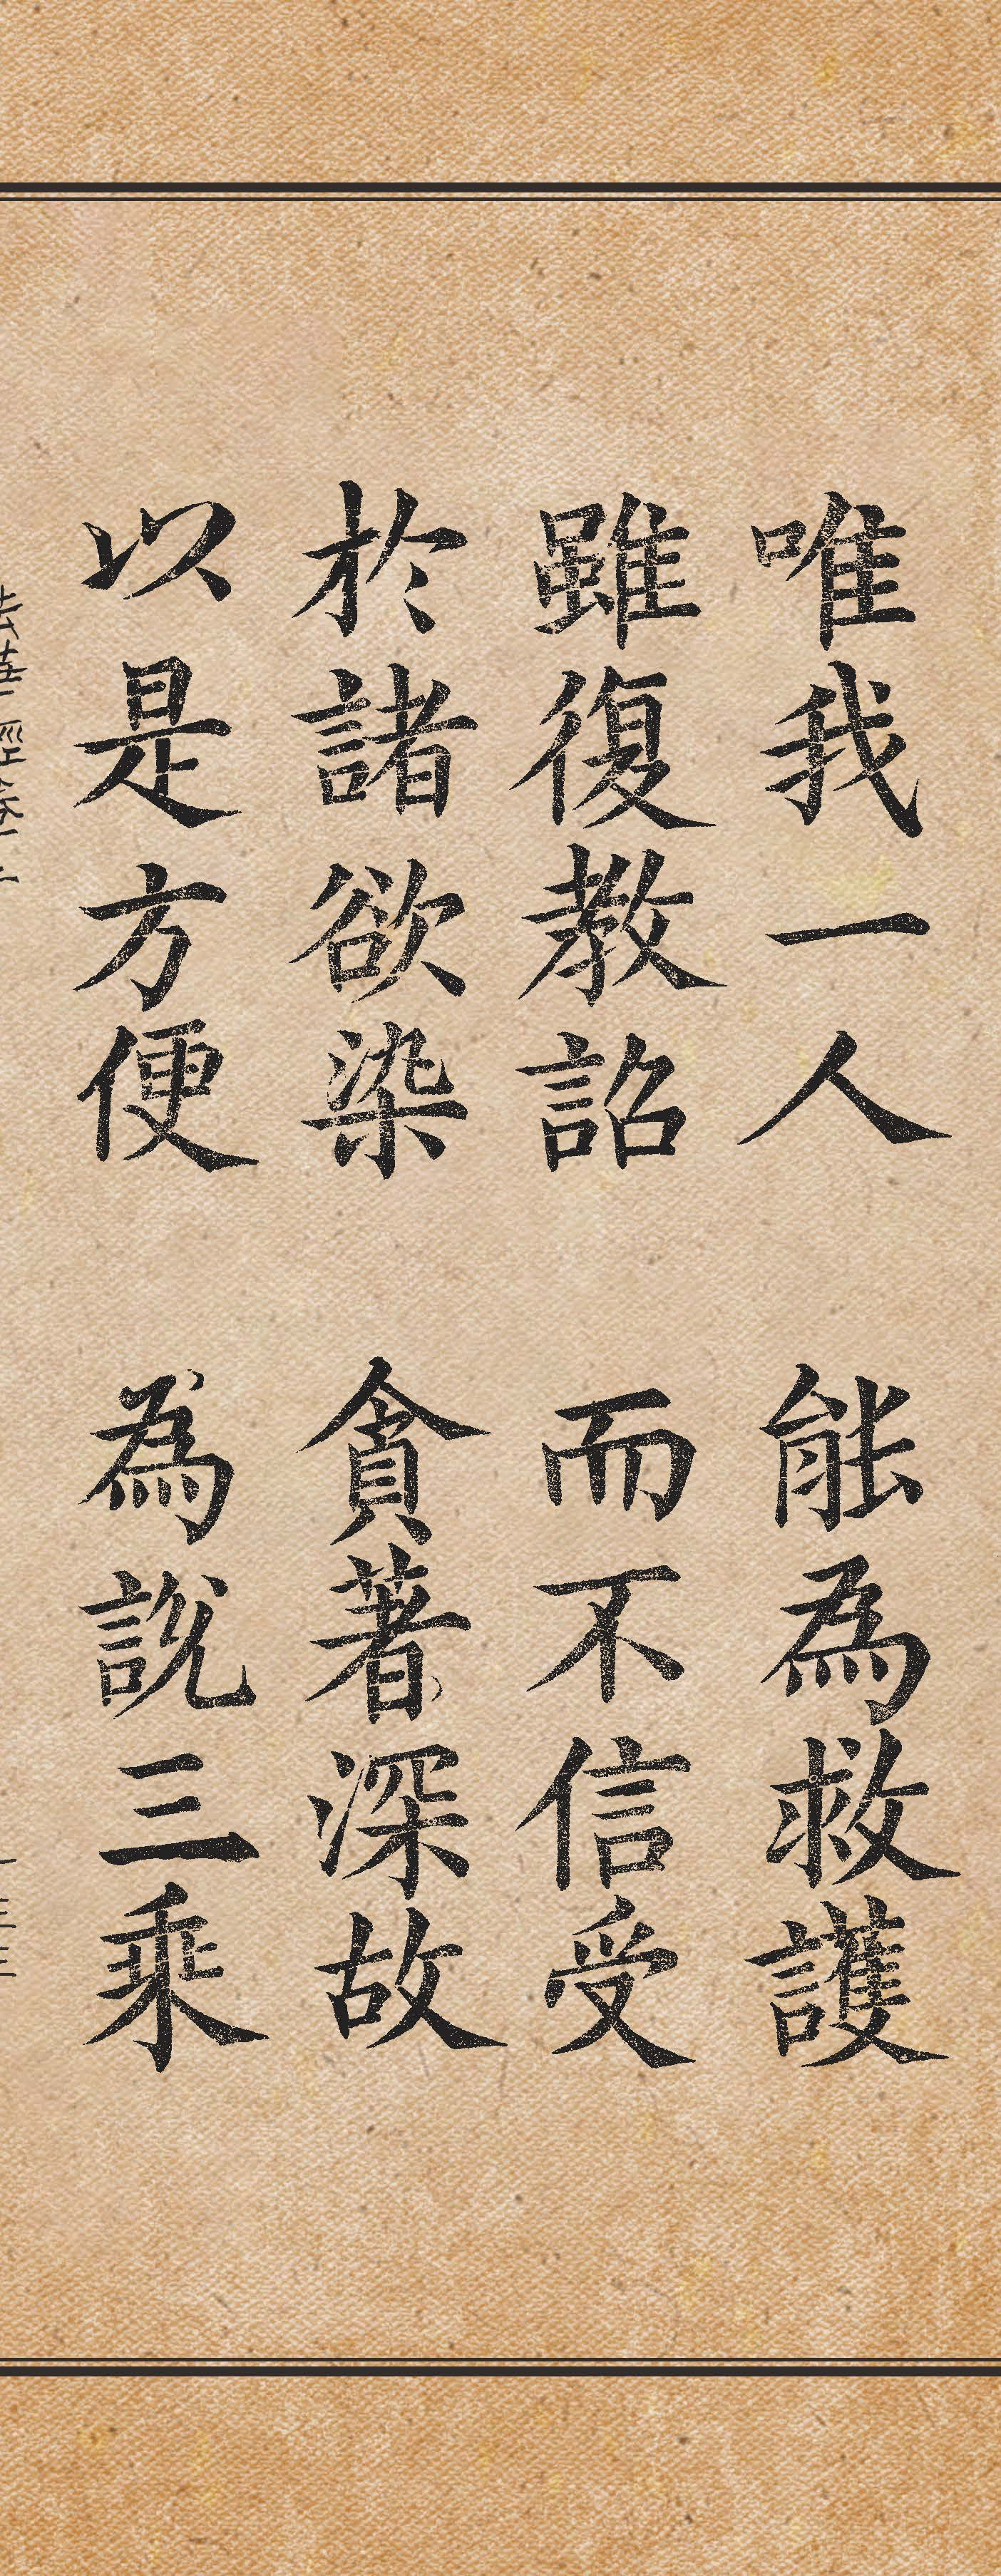 唯我一人 能為救護
雖復教詔 而不信受
於諸欲染 貪著深故
以是方便 為說三乘